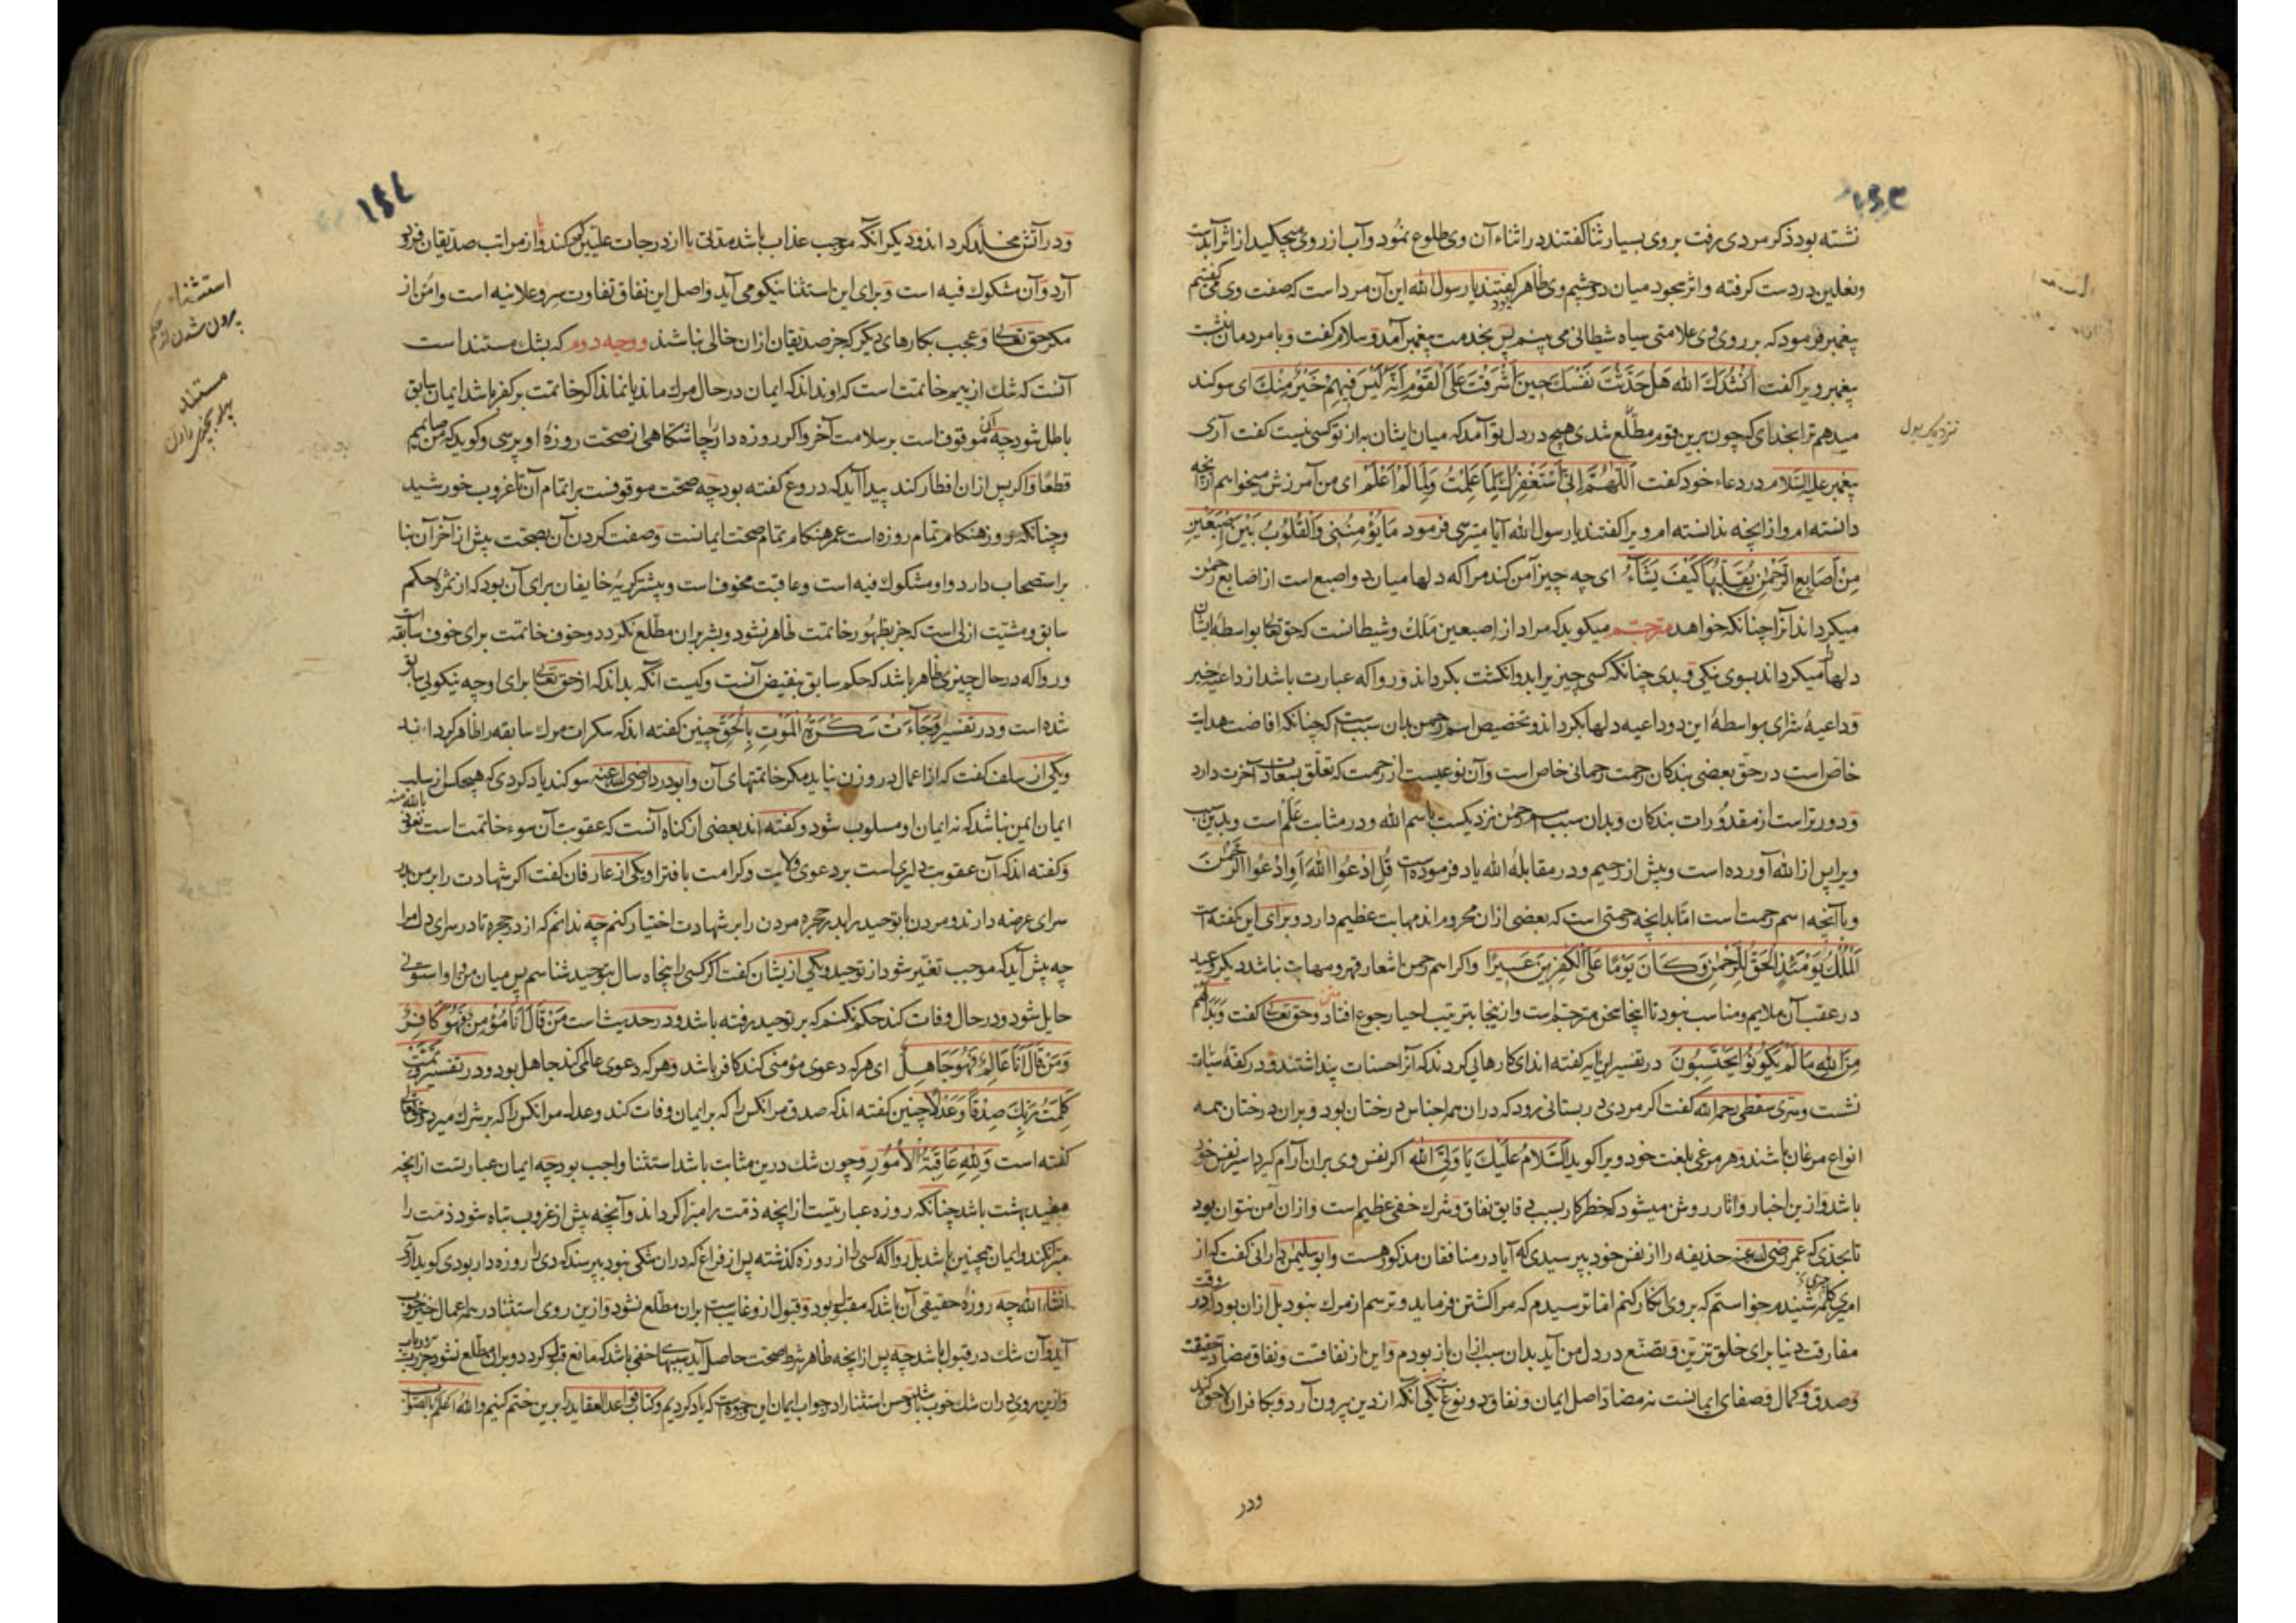 ۱۵۳
نشسته بود ذکر مردی میرفت بر وی بسیار ثنا گفتند در اثناء آن وی طلوع نمود و آب از روی میچکید از اثر آبدست
و نعلین در دست گرفته و اثر سجود میان دو چشم وی ظاهر بود گفتند یا رسول الله این آن مرد است که صفت وی می گفتیم
پیغمبر فرمود که بر روی وی علامتی سیاه شیطانی می بینم پس بخدمت پیغمبر آمد و سلام گفت و با مردمان بنشست
پیغمبر ویرا گفت اُنْشُدُكَ الله هَلْ حَدَّثْتَ نَفْسَكَ حِينَ اَشْرَفْتَ عَلَى الْقَوْمِ اَنَّهُ لَيْسَ فِيهِمْ خَيْرٌ مِنْكَ ای سوکند
میدهم ترا بخدای که چون برین قوم مطلّع شدی هیچ در دل تو آمد که میان ایشان به از تو کسی نیست گفت آری
نزدیک بول
پیغمبر علیه السّلام در دعاء خود گفت اَللّٰهُمَّ اِنِّی اَسْتَغْفِرُكَ لِمَا عَلِمْتُ وَلِمَا لَمْ اَعْلَمْ ای من آمرزش میخواهم از آنچه
دانسته ام و از آنچه ندانسته ام ویرا گفتند یا رسول الله آیا میترسی فرمود مَا يُؤْمِنُنِی وَالْقُلُوبُ بَيْنَ اِصْبَعَيْنِ
مِنْ اَصَابِعِ الرَّحْمٰنِ يُقَلِّبُهَا كَيْفَ يَشَاءُ ای چه چیز آمن کند مرا که دلها میان دو اصبع است از اصابع رحمٰن
میکرداند آنرا چنانکه خواهد مترجم میکوید که مراد از اصبعین مَلَك و شیطانست که حق تعالی بواسطهٔ ایشان
دلها را میکرداند بسوی نیکی و بدی چنانکه کسی چیزیرا بدو انکشت بکرداند و روا که عبارت باشد از داعیهٔ خیر
و داعیهٔ شرّ ای بواسطهٔ این دو داعیه دلها بکرداند و تخصیص اسم رحمن بدان سبب است که چنانکه افاضت هدایت
خاص است در حقّ بعضی بندکان رحمت رحمانی خاص است و آن نوعیست از رحمت که تعلّق بسعادت آخرت دارد
و دورتر است از مقدورات بندکان و بدان سبب اسم رحمٰن نزدیکست باسم الله و در مثابت عَلَم است و بدین سبب
ویرا پس از الله آورده است و پیش از رحیم و در مقابلهٔ الله یاد فرموده است قُلِ ادْعُوا اللهَ اَوِ ادْعُوا الرَّحْمٰنَ
و با آنچه اسم رحمت است امّا بدانچه رحمتی است که بعضی ازان محروم اند مهابت عظیم دارد و برای این گفته است
اَلْمُلْكُ يَوْمَئِذٍ الْحَقُّ لِلرَّحْمٰنِ وَكَانَ يَوْمًا عَلَى الْكٰفِرِينَ عَسِيرًا واکر اسم رحمن اشعار قهر و مهابت نباشد دیکر وعید
در عقب آن ملایم و مناسب نبود تا اینجا سخن مترجم است و ازینجا بترتیب احیا رجوع افتاد متن و حق تعالی گفت وَبَدَا لَهُمْ
مِنَ اللهِ مَا لَمْ يَكُونُوا يَحْتَسِبُونَ در تفسیر این آیه گفته اند ای کارهایی کردند که آنرا حسنات پنداشتند و در کفهٔ سیّآت
نشست و سَری سقطی رحمه الله گفت اگر مردی در بستانی رود که دران همه اجناس درختان بود و بران درختان همه
انواع مرغان باشند و هر مرغی بلغت خود ویرا کوید اَلسَّلَامُ عَلَيْكَ يَا وَلِیَّ اللهِ اکر نفس وی بران آرام کیرد اسیر نفس خود
باشد و ازین اخبار و آثار روشن میشود که خطر کار بسبب دقایق نفاق و شرك خفی عظیم است و ازان آمن نتوان بود
تا بحدّی که عمر رضی الله عنه حذیفه را از نفس خود بپرسیدی که آیا در منافقان مذکور هست و ابوسلیمن دارانی گفت که از
امیری کلمه شنیدم خواستم که بر وی انکار کنم امّا ترسیدم که مرا کشتن فرماید و ترسم از مرك نبود بل ازان بود که در وقت
مفارقت دنیا برای خلق تزیّن و تصنّع در دل من آید بدان سبب ازان باز بودم و این از نفاقست و نفاق مضادّ حقیقت
و صدق و کمال و صفای ایمانست نه مضادّ اصل ایمان و نفاق دو نوع است یکی آنکه از دین بیرون آرد و بکافران لاحق کند
ودر
۱۵۴
و در آتش مخلّد کرداند و دیکر آنکه موجب عذاب باشد مدّتی یا از درجات علّیین کم کند و از مراتب صدّیقان فرود
آرد و آن مشکوك فیه است و برای این استثنا نیکو می آید و اصل این نفاق تفاوت سرّ و علانیه است و امن از
مکر حق تعالی و عجب بکارهای دیکر که جز صدّیقان ازان خالی نباشند و وجه دوم که بشك مستند است
استثناء
برون شدن از حکم
آنست که شك از بیم خاتمت است که او نداند که ایمان در حال مرك ماند یا نماند اکر خاتمت بر کفر باشد ایمان سابق
مستند
باطل شود چه آن موقوفست بر سلامت آخر و اکر روزه دار را چاشتکاهی از صحّت روزهٔ او پرسی و کوید که من صائمم
قطعًا و اکر پس ازان افطار کند پیدا آید که دروغ گفته بود چه صحّت موقوفست بر اتمام آن تا غروب خورشید
و چنانکه روز هنکام تمام روزه است عمر هنکام تمام صحّت ایمانست و صفت کردن آن بصحّت پیش از آخر آن بنا
بر استصحاب دارد و او مشکوك فیه است و عاقبت مخوف است و بیشتر کریهٔ خایفان برای آن بود که از ثمرهٔ حکم
سابق و مشیّت ازلی است که جز بظهور خاتمت ظاهر نشود و بشر بران مطّلع نکردد و خوف خاتمت برای خوف سابقه است
و روا که در حال چیزی ظاهر باشد که حکم سابق بنقیض آنست و کیست آنکه بداند که از حق تعالی برای او چه نیکویی سابق
شده است و در تفسیر وَجَاءَتْ سَكْرَةُ الْمَوْتِ بِالْحَقِّ چنین گفته اند که سکرات مرك سابقه را ظاهر کرداند
و یکی از سلف گفت که از اعمال در وزن نیاید مکر خاتمتهای آن و ابودردا رضی الله عنه سوکند یاد کردی که هیچکس از سلب
ایمان ایمن نباشد که نه ایمان او مسلوب شود و گفته اند بعضی از کناه آنست که عقوبت آن سوء خاتمت است نعوذ بالله منه
و گفته اند که آن عقوبت دلیری است بر دعوی ولایت و کرامت بافترا و یکی از عارفان گفت اکر شهادت را بر من بدر
سرای عرضه دارند و مردن با توحید را بدر حجره مردن را بر شهادت اختیار کنم چه ندانم که از در حجره تا در سرای دل مرا
چه پیش آید که موجب تغیّر شود از توحید و یکی ازیشان گفت اکر کسی را پنجاه سال بتوحید شناسم پس میان من و او استونی
حایل شود و در حال وفات کند حکم نکنم که بر توحید رفته باشد و در حدیث است مَنْ قَالَ اَنَا مُؤْمِنٌ فَهُوَ كَافِرٌ
وَمَنْ قَالَ اَنَا عَالِمٌ فَهُوَ جَاهِلٌ ای هر که دعوی مؤمنی کند کافر باشد و هر که دعوی عالمی کند جاهل بود و در تفسیر وَتَمَّتْ
كَلِمَتُ رَبِّكَ صِدْقًا وَعَدْلًا چنین گفته اند که صدق مر آنکس را که بر ایمان وفات کند و عدل مر آنکس را که بر شرك میرد حق تعالی
گفته است وَلِلّٰهِ عَاقِبَةُ الْاُمُورِ و چون شك درین مثابت باشد استثنا واجب بود چه ایمان عبارتست از آنچه
مفید بهشت باشد چنانکه روزه عبارتیست از آنچه ذمّت را مبرّا کرداند و آنچه پیش از غروب تباه شود ذمّت را
مبرّا نکند و ایمان همچنین باشد بل روا که کسی را از روزهٔ کذشته پس از فراغ که دران شکّی نبود بپرسند که دی را روزه دار بودی کوید آری
انشاء الله چه روزهٔ حقیقی آن باشد که مقبول بود و قبول از و غایب است بران مطّلع نشود و ازین روی استثنا در همه اعمال خیر خوب
آید و آن شك در قبول باشد چه پس از آنچه ظاهر شرط صحّت حاصل آید سببهاء خفی باشد که مانع قبول کردد و بران مطّلع نشود جز رب الارباب
و ازین روی دران شك خوب باشد و حسن استثنا را در جواب ایمان این وجوه است که یاد کردیم و کتاب قواعد العقاید را برین ختم کنیم و الله اعلم بالصواب